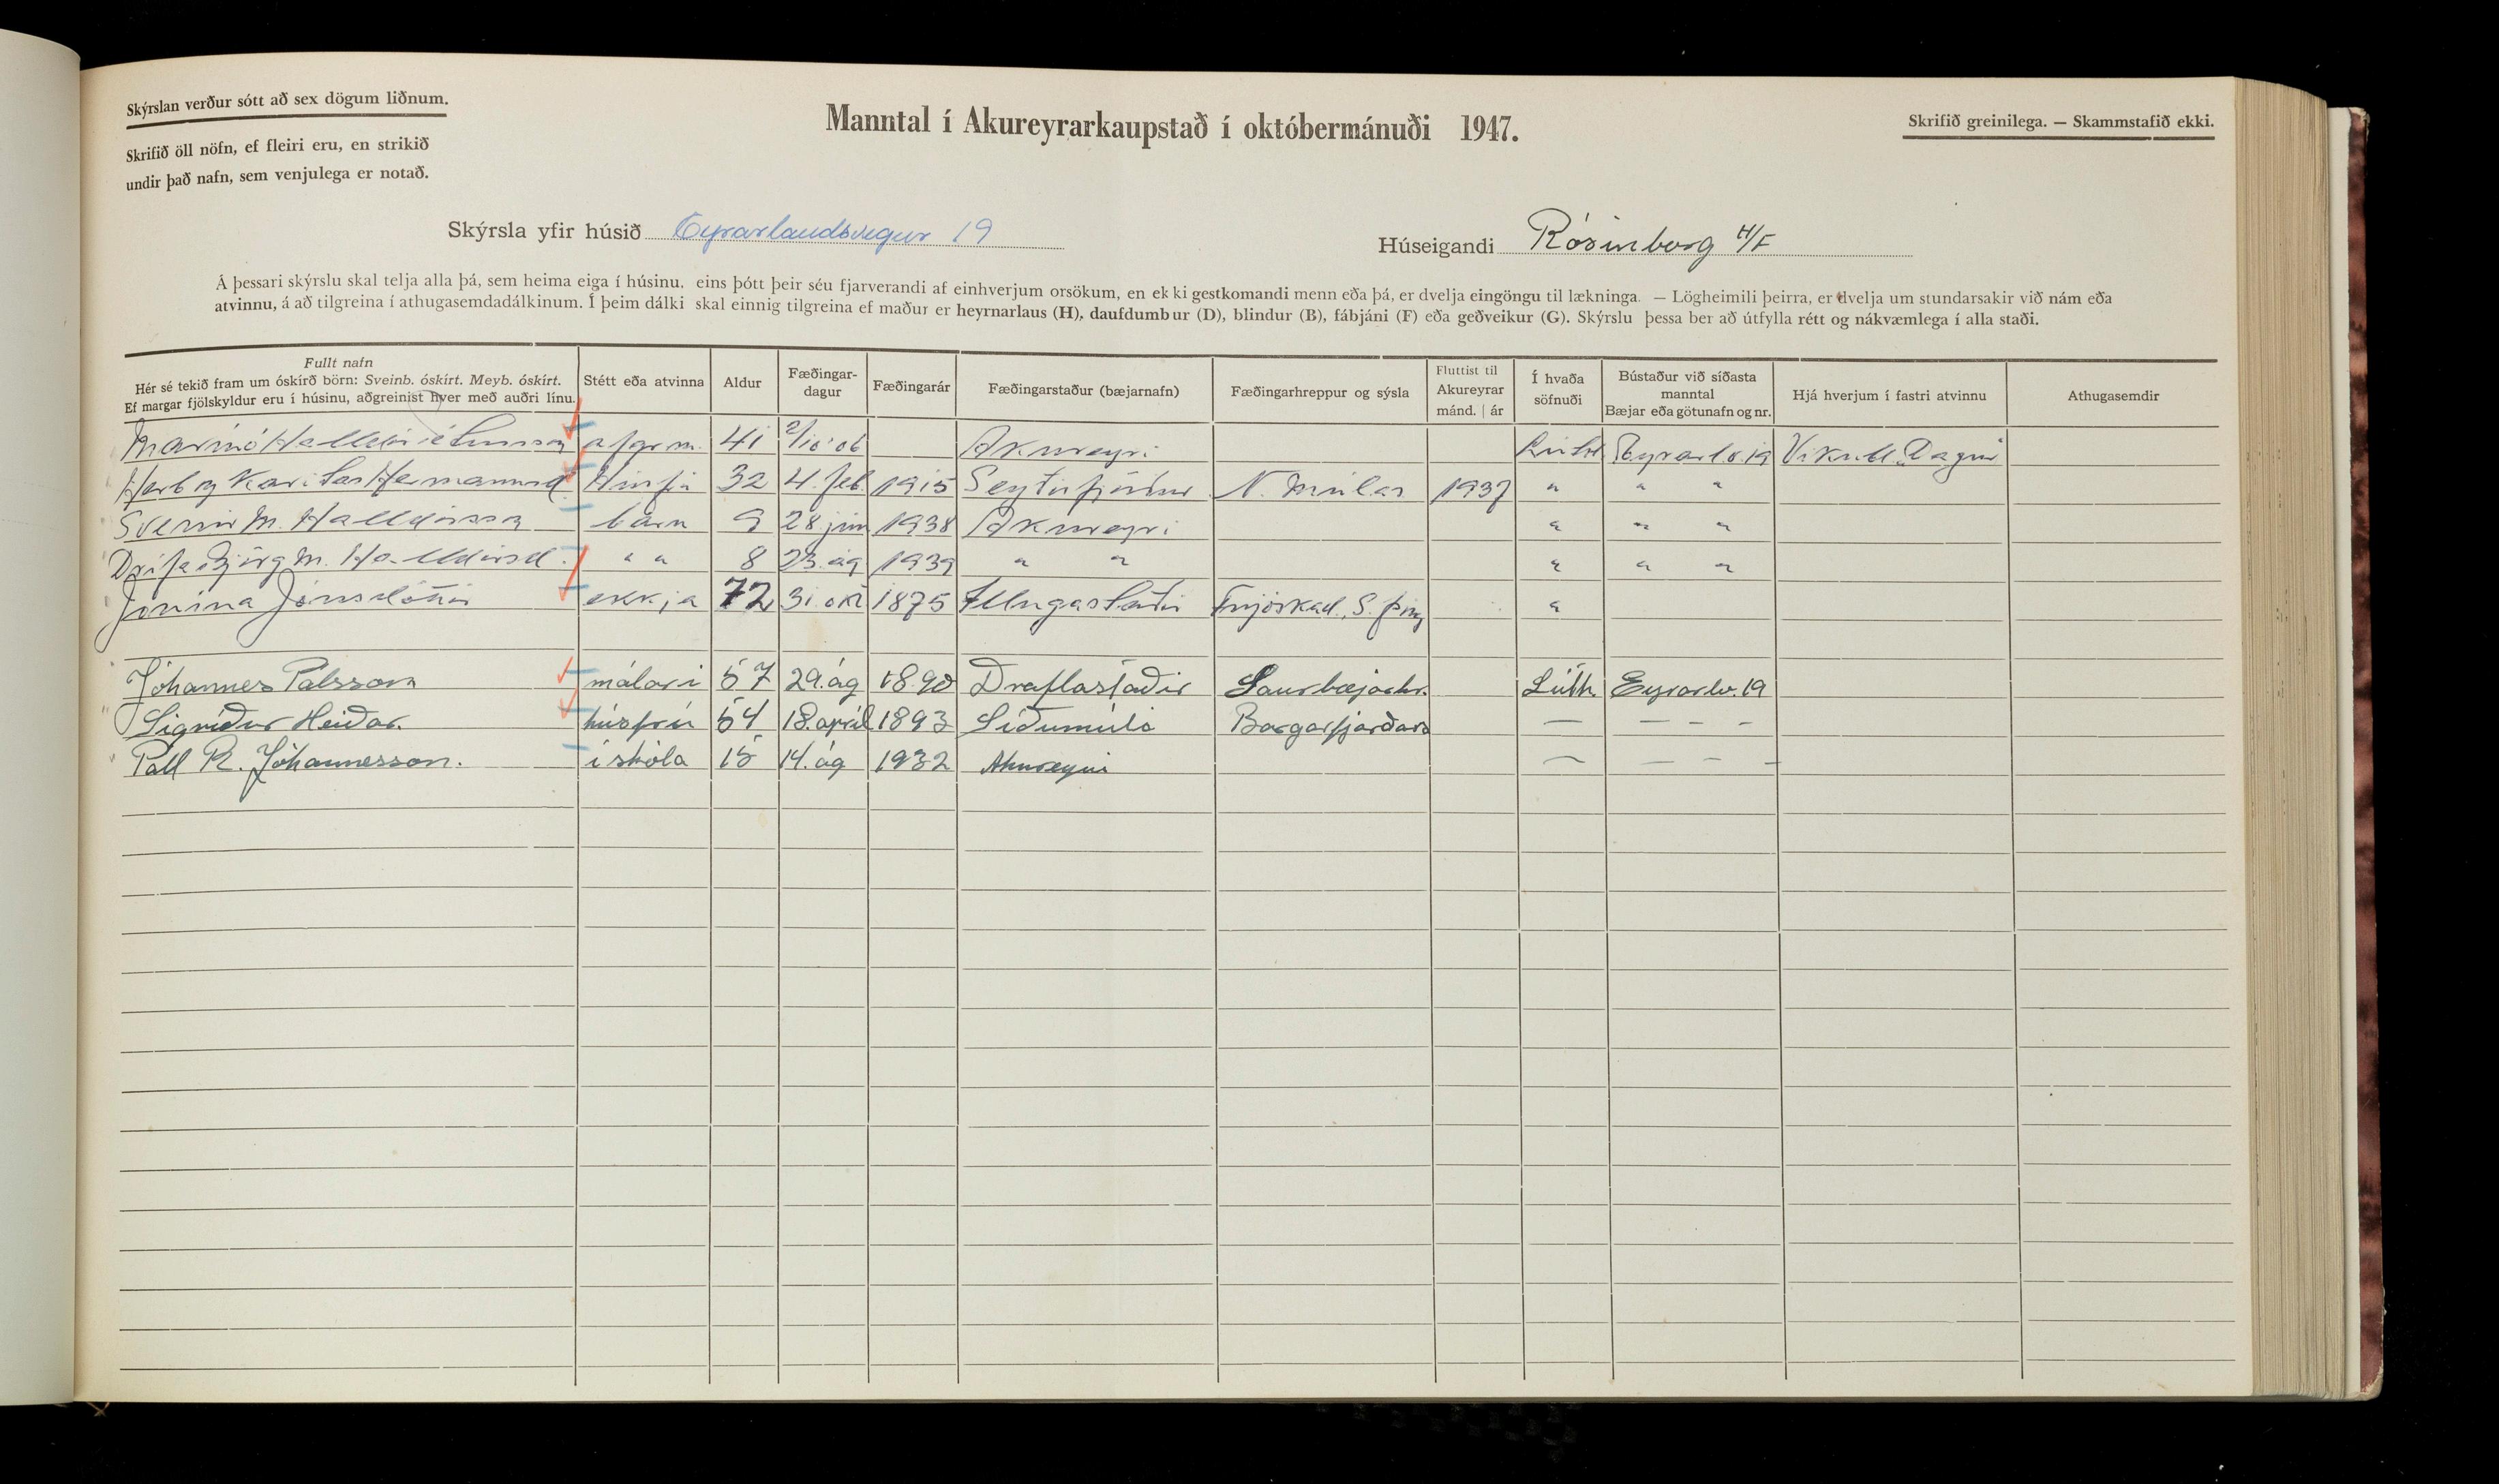 Skýrslan verður sótt að sex dögum liðnum.
Skrifið öll nöfn, ef fleiri eru, en strikið
undir það nafn, sem venjulega er notað.
Manntal í Akureyrarkaupstað í októbermánuði 1947.
Skrifið greinilega. — Skammstafið ekki.
Skýrsla yfir húsið Eyrarlandsvegur 19
Húseigandi Rósinborg H/F
Á þessari skýrslu skal telja alla þá, sem heima eiga í húsinu, eins þótt þeir séu fjarverandi af einhverjum orsökum, en ekki gestkomandi menn eða þá, er dvelja eingöngu til lækninga. — Lögheimili þeirra, er dvelja um stundarsakir við nám eða
atvinnu, á að tilgreina í athugasemdadálkinum. Í þeim dálki skal einnig tilgreina ef maður er heyrnarlaus (H), daufdumbur (D), blindur (B), fábjáni (F) eða geðveikur (G). Skýrslu þessa ber að útfylla rétt og nákvæmlega í alla staði.
Fullt nafn
Hér sé tekið fram um óskírð börn: Sveinb. óskírt. Meyb. óskírt.
Ef margar fjölskyldur eru í húsinu, aðgreinist hver með auðri línu.
Stétt eða atvinna
Aldur
Fæðingar-
dagur
Fæðingarár
Fæðingarstaður (bæjarnafn)
Fæðingarhreppur og sýsla
Fluttist til
Akureyrar
mánd. | ár
Í hvaða
söfnuði
Bústaður við síðasta
manntal
Bæjar eða götunafn og nr.
Hjá hverjum í fastri atvinnu
Athugasemdir
Marinó Halldór afgr.m. 41 2/10 '06 Akureyri Luth Eyrarl.v. 19 Vikubl. "Dagur
Karitas Hermannsd. Húsfrú 32 4. feb. 1915 Seyðisfjörður N. Múlas 1937 " " "
Sverrir M. Halldórsson barn 9 28 jún 1938 Akureyri " " "
Drífa Björg M. Halldórsd. " " 8 23. ág 1939 " " " " "
Jónína Jónsdóttir ekkja 72 31. okt 1875 Illugastaðir Fnjóskad., S. Þing "
Jóhannes Pálsson málari 57 29. ág 1890 Draflastaðir Saurbæjarhr. Lúth. Eyrarlv. 19
Sigríður Heiðar. húsfrú 54 18. apríl 1893 Síðumúla Borgarfjarðars — — — —
Páll R. Jóhannesson. í skóla 15 14. ág 1932 Akureyri — — — —